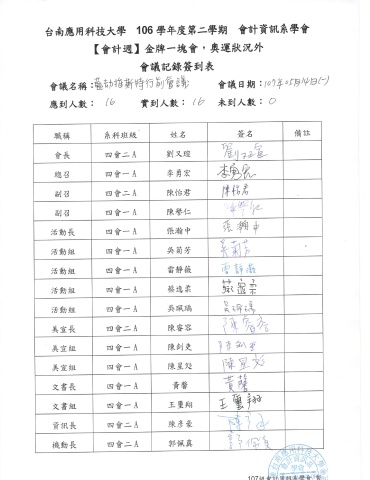 台南應用科技大學 106 學年度第二學期 會計資訊系學會
【會計週】金牌一塊會，奧運狀況外
會議記錄簽到表
會議名稱： 會議日期：107年05月14日(一)
應到人數：16 實到人數：16 未到人數：0
職稱 系科班級 姓名 簽名 備註
會長 四會二A 劉又瑄
總召 四會一A 李勇宏 李勇宏
副召 四會二A 陳怡君 陳怡君
副召 四會一A 陳譽仁
活動長 四會一A 張瀚中 張瀚中
活動組 四會一A 吳菊芳 吳菊芳
活動組 四會一A 雷靜薇 雷靜薇
活動組 四會一A 蔡逸柔 蔡逸柔
活動組 四會一A 吳珮瑀 吳珮瑀
美宣長 四會二A 陳睿容 陳睿容
美宣組 四會一A 陳劍更
美宣組 四會一A 陳星彣 陳星彣
文書長 四會一A 黃馨 黃馨
文書組 四會一A 王璽翔 王璽翔
資訊長 四會二A 陳彥豪
機動長 四會二A 郭佩真